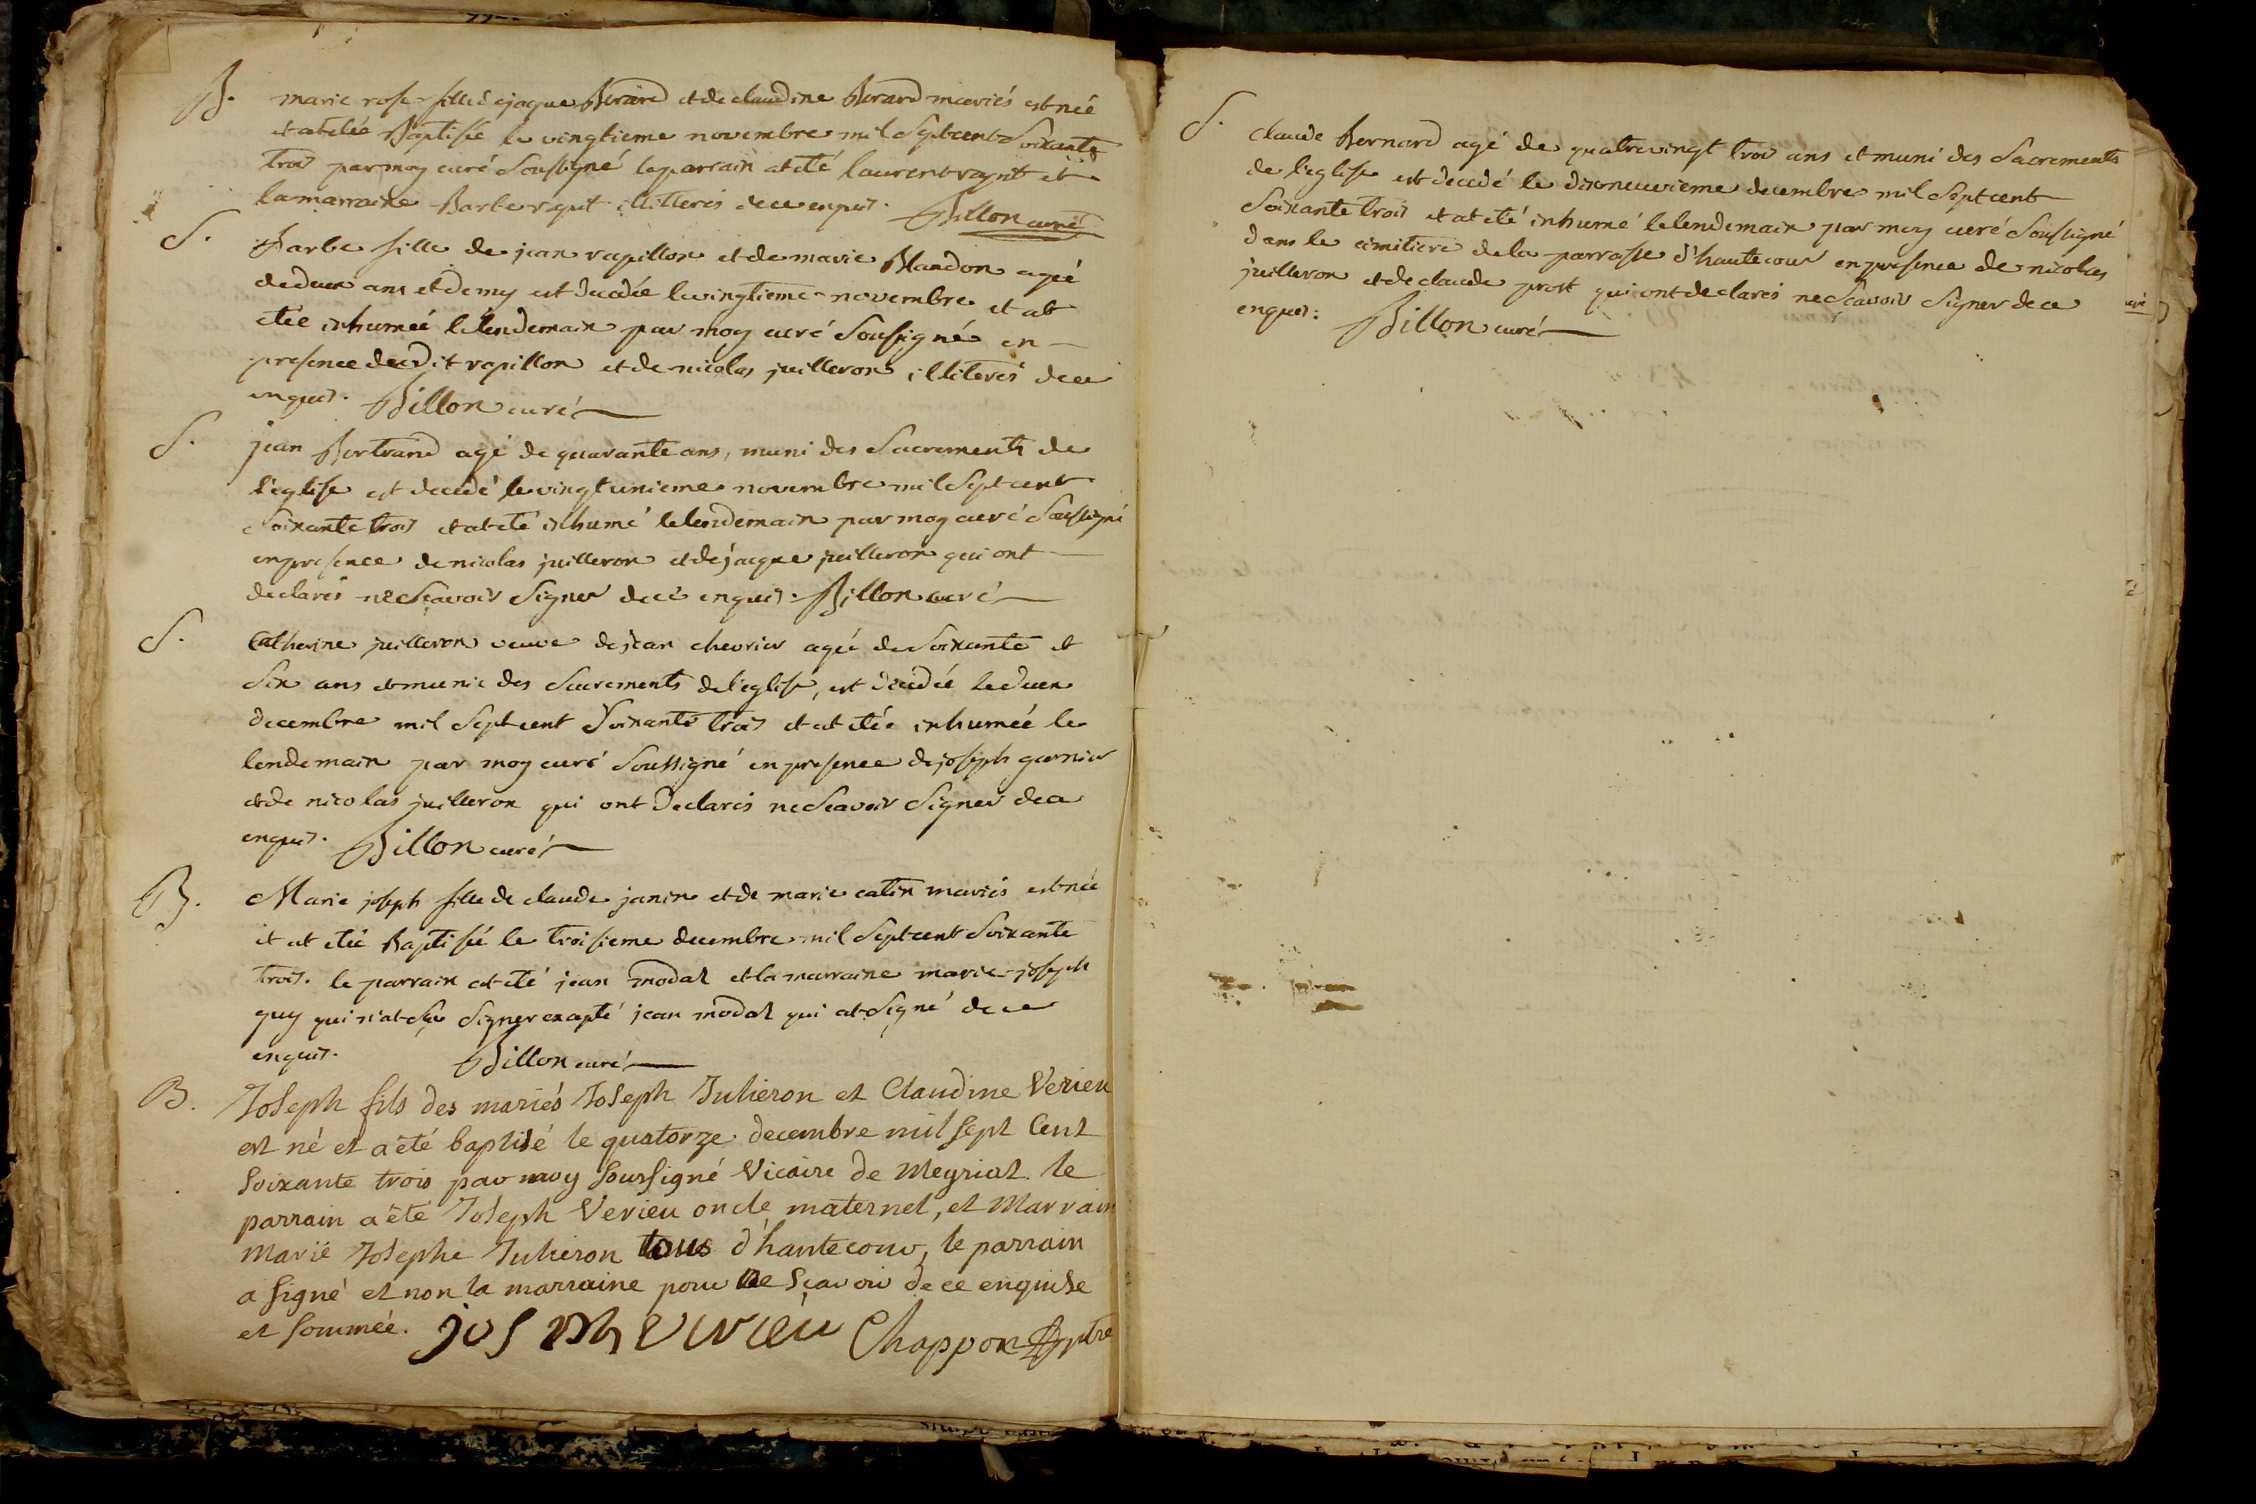 B. marie rose fille de jaque Berard et de claudine Berard mariés est née
et at étée Baptisée le vingtieme novembre mil Sept cent Soixante
trois par moy curé Soussigné le parrain at été laurent et
la marraine Barbe illiterés de ce enquis. Billon curé
S. Barbe fille de jean rapillon et de marie Blandon agée
de deux ans et demy est decedée le vingtieme novembre et at
étée inhumée le lendemain par moy curé Soussigné en
presence dudit rapillon et de nicolas juilleron illiterés de ce
enquis. Billon curé
S. jean Bertrand agé de quarante ans, muni des Sacrements de
l'eglise est decedé le vingt unieme novembre mil Sept cent
Soixante trois et at été inhumé le lendemain par moy curé Soussigné
en presence de nicolas juilleron et de jacque juilleron qui ont
declarés ne Sçavoir Signer de ce enquis. Billon curé
S. Catherine juilleron veuve de jean chevrier agée de Soixante et
Six ans et munie des Sacrements de l'eglise, est decedée le deux
decembre mil Sept cent Soixante trois et at étée inhumée le
lendemain par moy curé Soussigné en presence de joseph garnier
et de nicolas juilleron qui ont declarés ne Scavoir Signer de ce
enquis. Billon curé
B. Marie joseph fille de claude janin et de marie catin mariés est née
et at étée Baptisée le troisieme decembre mil Sept cent Soixante
trois. le parrain at été jean modas et la marraine marie joseph
guy qui n'at Sçu Signer excepté jean modas qui at Signé de ce
enquis. Billon curé
B. Joseph fils des mariés Joseph Julieron et Claudine Verieu
est né et a été baptisé le quatorze decembre mil sept Cent
Soixante trois par moy soussigné Vicaire de Meyriat. le
parrain a été Joseph Verieu oncle maternel, et Marrain
Marie Josephe Julieron tous d'hautecour, le parrain
a signé et non la marraine pour ne sçavoir de ce enquise
et sommée. joseph verieu Chappon ptre
S. claude Bernard agé de quatrevingt trois ans et muni des Sacrements
de l'eglise est decedé le dixneuvieme decembre mil Sept cent
Soixante trois et at été inhumé le lendemain par moy curé Soussigné
dans le cimitiere de la parroisse d'hautecour en presence de nicolas
juilleron et de claude prost qui ont declarés ne Sçavoir Signer de ce
enquis. Billon curé